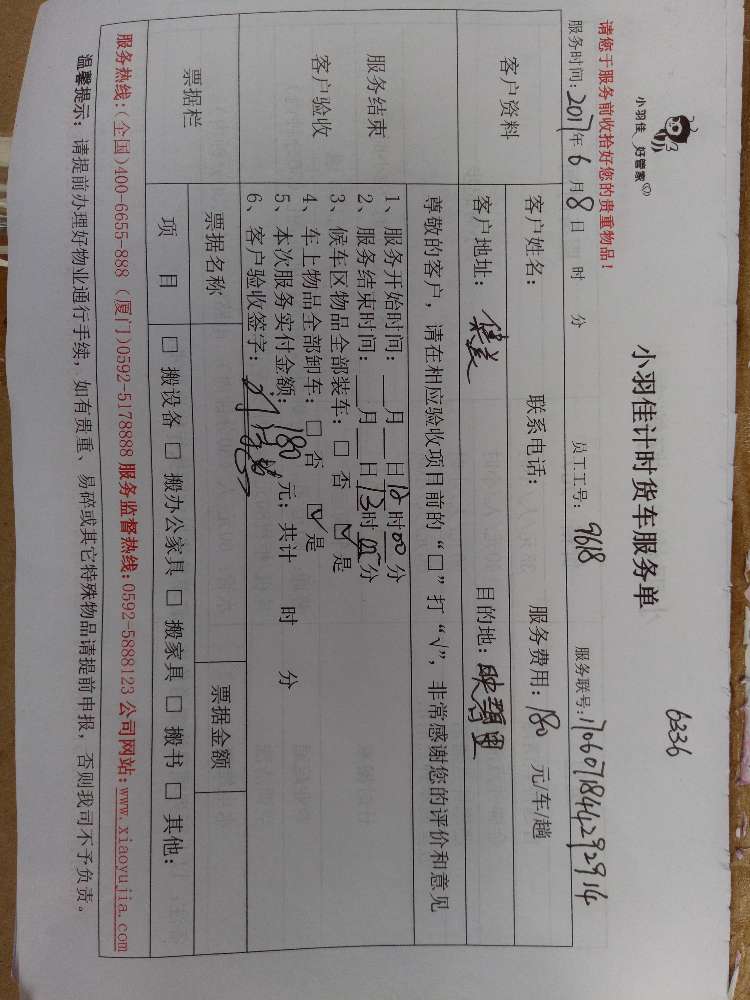 6336
小羽佳 好管家
小羽佳计时货车服务单
请您于服务前收拾好您的贵重物品！
服务时间：2017年 6 月 8 日 时 分 员工工号：9618 服务联号：1706071844292914
客户资料
客户姓名： 联系电话： 服务费用：180 元/车/趟
客户地址： 目的地：
服务结束
客户验收
尊敬的客户，请在相应验收项目前的“□”打“√”，非常感谢您的评价和意见
1、服务开始时间：__月__日12时00分
2、服务结束时间：__月__日13时05分
3、候车区物品全部装车：□ 否 ☑ 是
4、车上物品全部卸车：□ 否 ☑ 是
5、本次服务实付金额：180 元；共计 时 分
6、客户验收签字：
票据栏
票据名称 票据金额
项 目 □ 搬设备 □ 搬办公家具 □ 搬家具 □ 搬书 □ 其他：
服务热线：（全国）400-6655-888（厦门）0592-5178888 服务监督热线：0592-5888123 公司网站：www.xiaoyujia.com
温馨提示：请提前办理好物业通行手续，如有贵重、易碎或其它特殊物品请提前申报，否则我司不予负责。